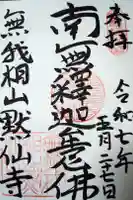 奉拝
令和七年
五月二七日
南無釋迦牟尼佛
無我相山黙仙寺